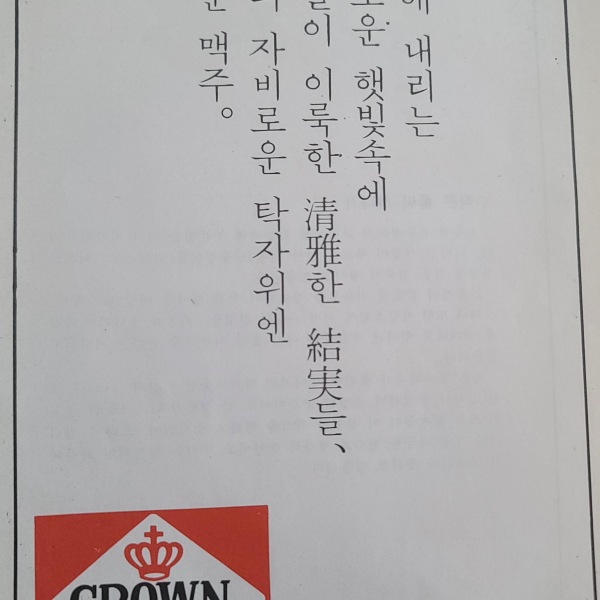 내리는
햇빛속에
이룩한 清雅한 結実들、
자비로운 탁자위엔
맥주。
CROWN